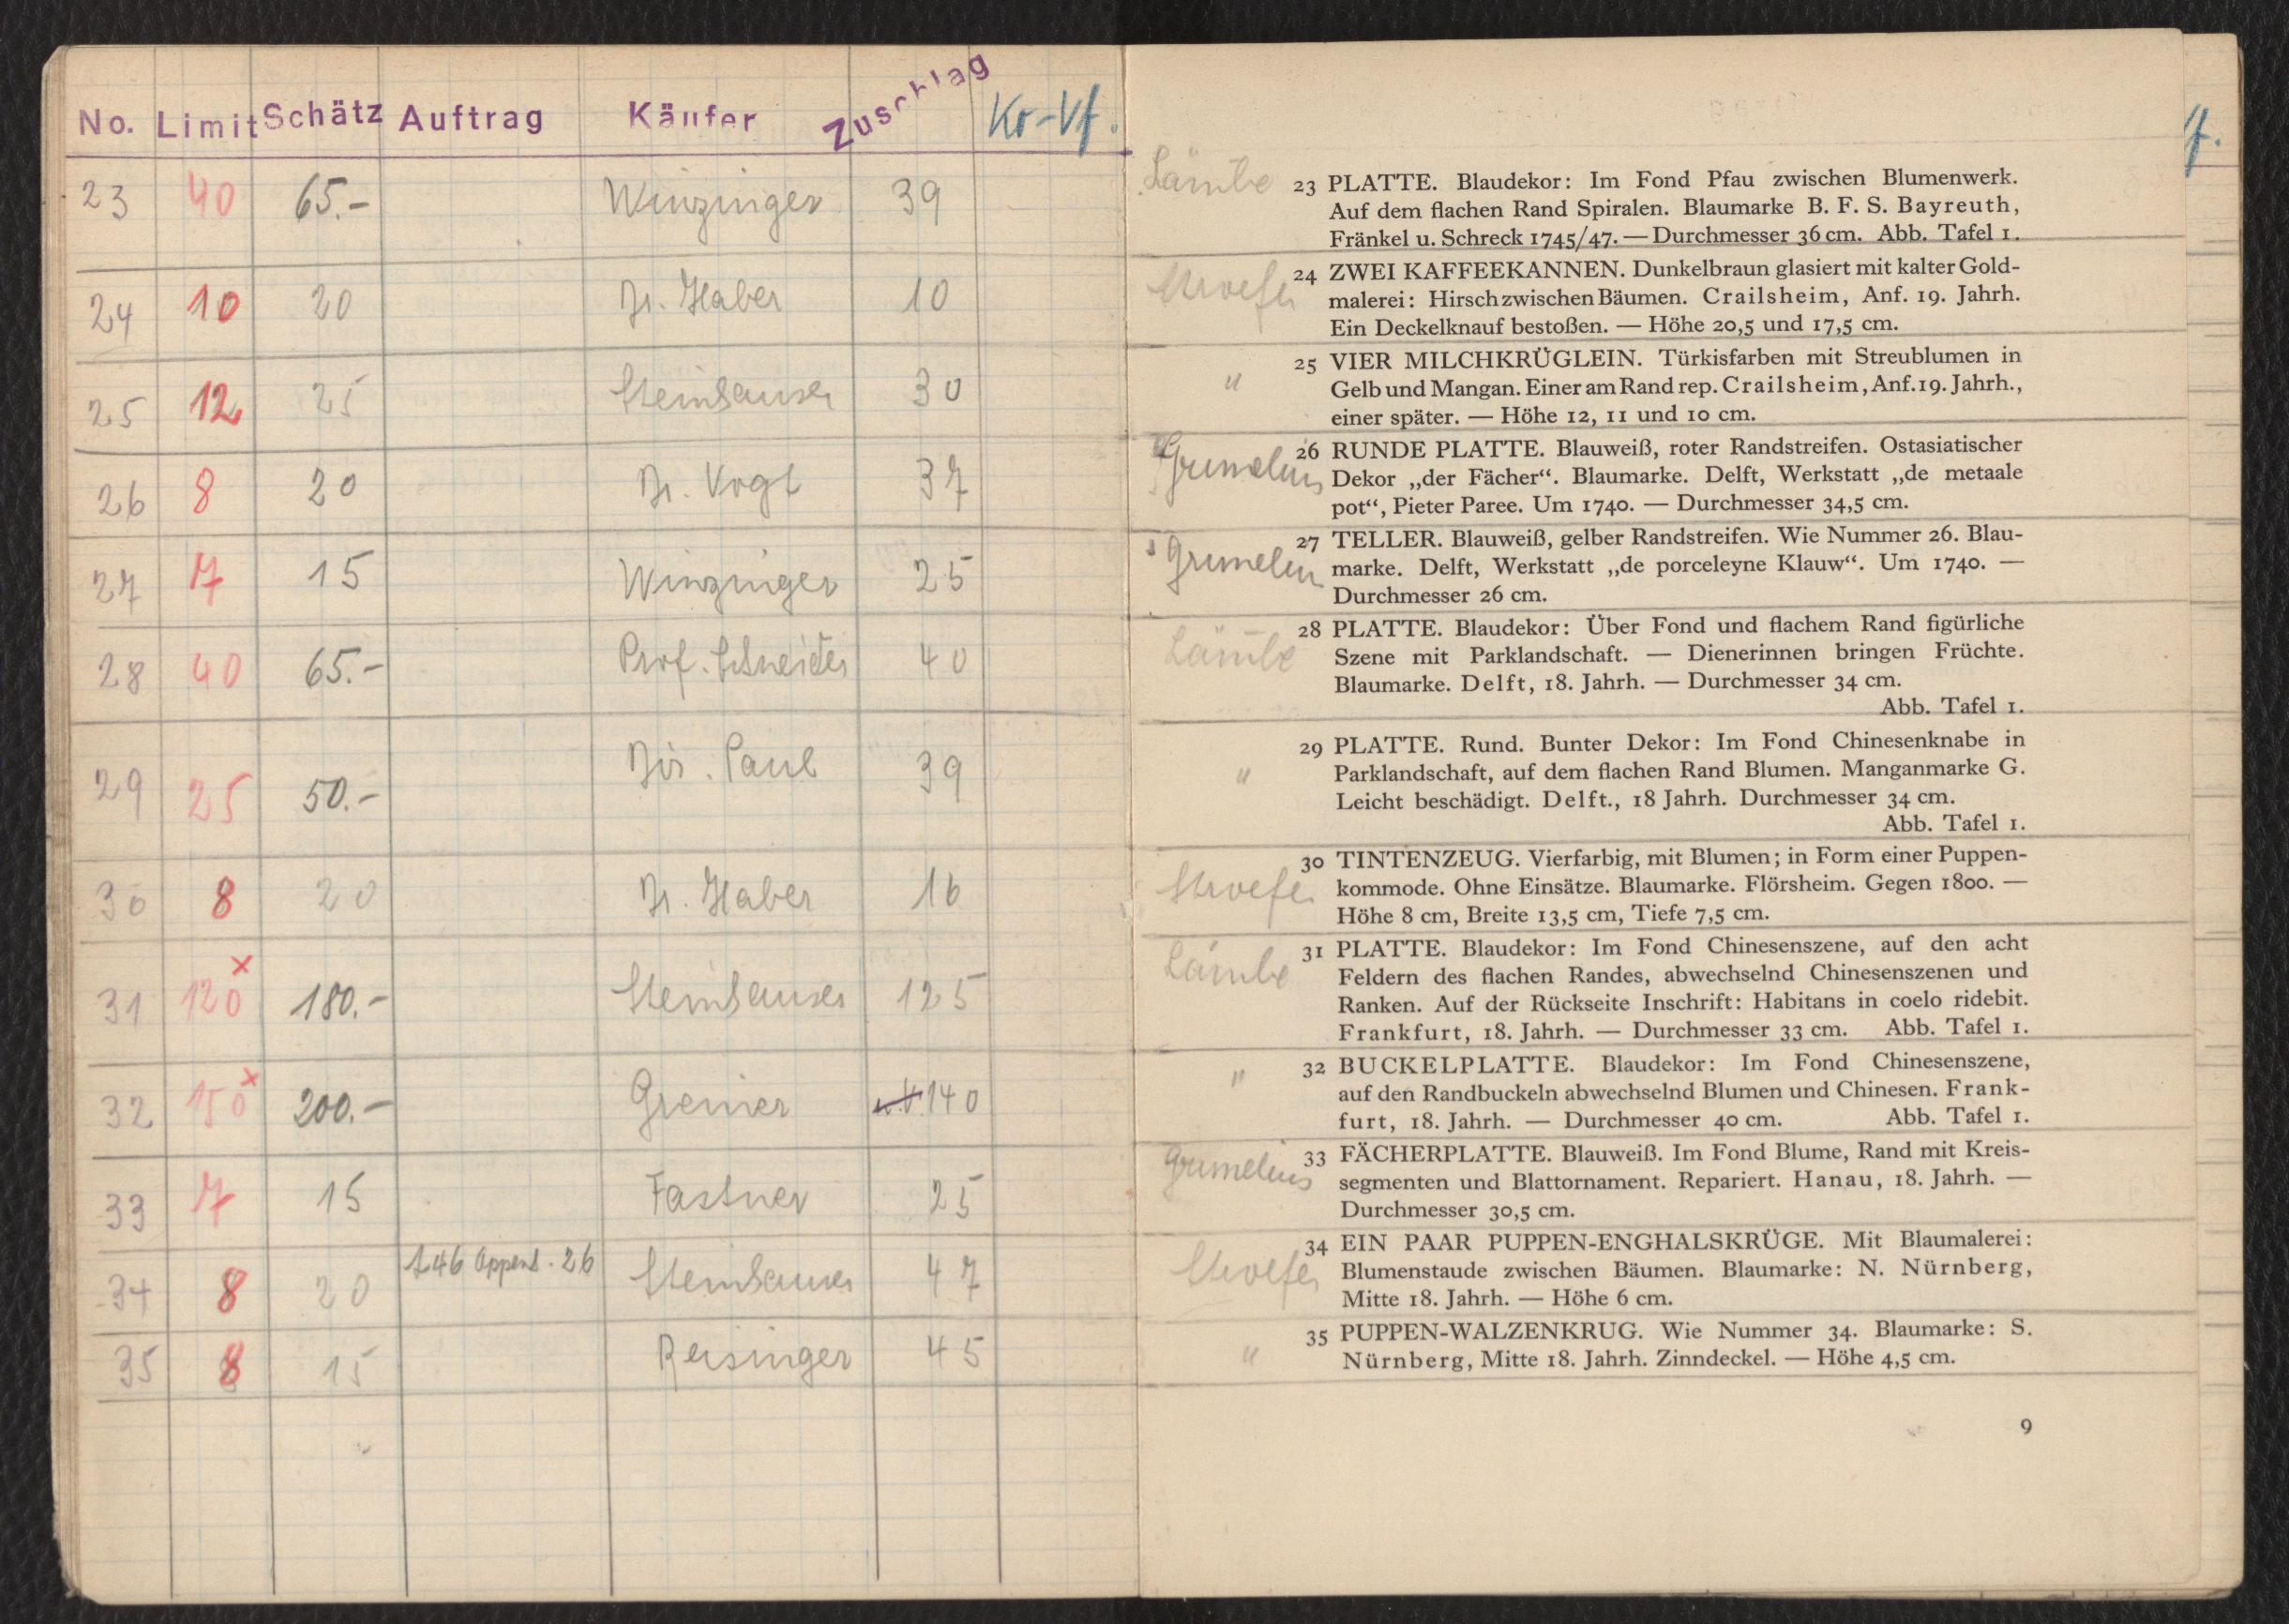 No. Limit Schätz Auftrag Käufer Zuschlag Kr-Vf.
23 40 65.- Winzinger 39
24 10 20 Dr. Haber 10
25 12 25 Steinhauser 30
26 8 20 Dr. Vogt 37
27 7 15 Winzinger 25
28 40 65.- Prof. Schneider 40
29 25 50.- Dir. Paul 39
30 8 20 Dr. Haber 16
31 120 x 180.- Steinhauser 125
32 150 x 200.- Greiner 140
33 7 15 Fastner 25
34 8 20 26 Steinhauser 47
35 8 15 Reisinger 45
f.
Lämle 23 PLATTE. Blaudekor: Im Fond Pfau zwischen Blumenwerk.
Auf dem flachen Rand Spiralen. Blaumarke B. F. S. Bayreuth,
Fränkel u. Schreck 1745/47. — Durchmesser 36 cm. Abb. Tafel 1.
Stroefer 24 ZWEI KAFFEEKANNEN. Dunkelbraun glasiert mit kalter Gold-
malerei: Hirsch zwischen Bäumen. Crailsheim, Anf. 19. Jahrh.
Ein Deckelknauf bestoßen. — Höhe 20,5 und 17,5 cm.
" 25 VIER MILCHKRÜGLEIN. Türkisfarben mit Streublumen in
Gelb und Mangan. Einer am Rand rep. Crailsheim, Anf. 19. Jahrh.,
einer später. — Höhe 12, 11 und 10 cm.
Grunelius 26 RUNDE PLATTE. Blauweiß, roter Randstreifen. Ostasiatischer
Dekor „der Fächer“. Blaumarke. Delft, Werkstatt „de metaale
pot“, Pieter Paree. Um 1740. — Durchmesser 34,5 cm.
Grunelius 27 TELLER. Blauweiß, gelber Randstreifen. Wie Nummer 26. Blau-
marke. Delft, Werkstatt „de porceleyne Klauw“. Um 1740. —
Durchmesser 26 cm.
Lämle 28 PLATTE. Blaudekor: Über Fond und flachem Rand figürliche
Szene mit Parklandschaft. — Dienerinnen bringen Früchte.
Blaumarke. Delft, 18. Jahrh. — Durchmesser 34 cm.
Abb. Tafel 1.
" 29 PLATTE. Rund. Bunter Dekor: Im Fond Chinesenknabe in
Parklandschaft, auf dem flachen Rand Blumen. Manganmarke G.
Leicht beschädigt. Delft., 18 Jahrh. Durchmesser 34 cm.
Abb. Tafel 1.
Stroefer 30 TINTENZEUG. Vierfarbig, mit Blumen; in Form einer Puppen-
kommode. Ohne Einsätze. Blaumarke. Flörsheim. Gegen 1800. —
Höhe 8 cm, Breite 13,5 cm, Tiefe 7,5 cm.
Lämle 31 PLATTE. Blaudekor: Im Fond Chinesenszene, auf den acht
Feldern des flachen Randes, abwechselnd Chinesenszenen und
Ranken. Auf der Rückseite Inschrift: Habitans in coelo ridebit.
Frankfurt, 18. Jahrh. — Durchmesser 33 cm. Abb. Tafel 1.
" 32 BUCKELPLATTE. Blaudekor: Im Fond Chinesenszene,
auf den Randbuckeln abwechselnd Blumen und Chinesen. Frank-
furt, 18. Jahrh. — Durchmesser 40 cm. Abb. Tafel 1.
Grunelius 33 FÄCHERPLATTE. Blauweiß. Im Fond Blume, Rand mit Kreis-
segmenten und Blattornament. Repariert. Hanau, 18. Jahrh. —
Durchmesser 30,5 cm.
Stroefer 34 EIN PAAR PUPPEN-ENGHALSKRÜGE. Mit Blaumalerei:
Blumenstaude zwischen Bäumen. Blaumarke: N. Nürnberg,
Mitte 18. Jahrh. — Höhe 6 cm.
" 35 PUPPEN-WALZENKRUG. Wie Nummer 34. Blaumarke: S.
Nürnberg, Mitte 18. Jahrh. Zinndeckel. — Höhe 4,5 cm.
9